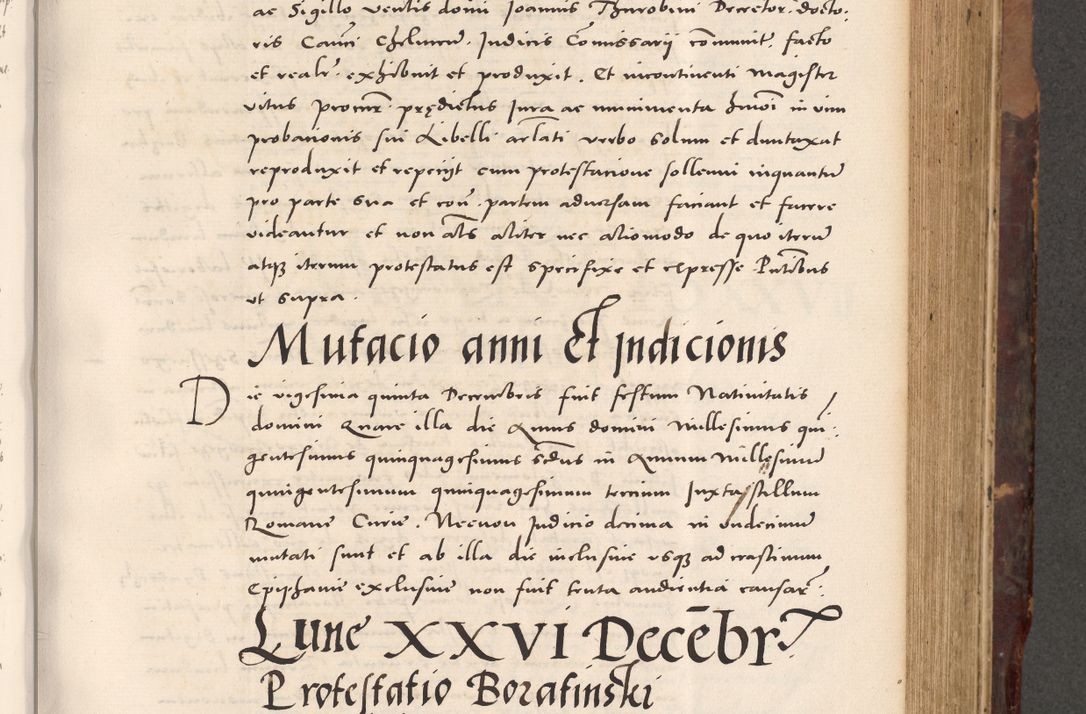 ac Sigillo ventis domi Joannis Thurobini Decretor. docto.
ris Canci Chelmeñ. Judicis Comissarii comunit. facto
et realr. exhibuit et produxit. Et incontinenti Magister
vitus procur. prędictus Jura ac munimenta hmoi in vim
probationis sui Libelli artlati verbo solum et duntaxat
reproduxit et repetijt cum protestacione sollenni inquantu
pro parte sua et con. partem adversam faciant et facere
videantur et non als aliter nec aliomodo de quo iteru
atqz iterum protestatus est specifixe et expresse Pntibus
ut supra.
Mutacio anni et Indicionis
Die vigesima quinta Decembris fuit festum Nativitatis
domini Quare illa die Annus domini Millesimus qui:
gentesimus quinquagesimus scdus in Annum Millesimu
quingentesimum quinquagesimum tercium Juxta stillum
Romane Curie. Necnon Judicio decima in undecimu
mutati sunt et ab illa die inclusive usqz ad crastinum
Epiphanie exclusive non fuit tenta audientia causar.
Lune XXVI Decebr.
Protestatio Boratinski